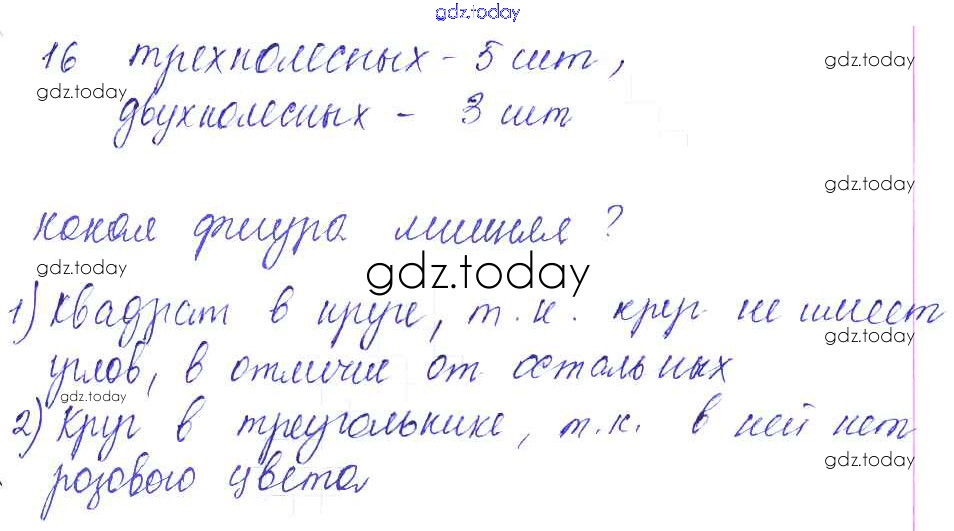 gdz.today
16 трехколесных - 5 шт,
gdz.today
gdz.today
двухколесных - 3 шт
gdz.today
какая фигура лишняя?
gdz.today
gdz.today
1) Квадрат в круге, т.к. круг не имеет
gdz.today
углов, в отличие от остальных
gdz.today
2) Круг в треугольнике, т.к. в ней нет
gdz.today
розового цвета